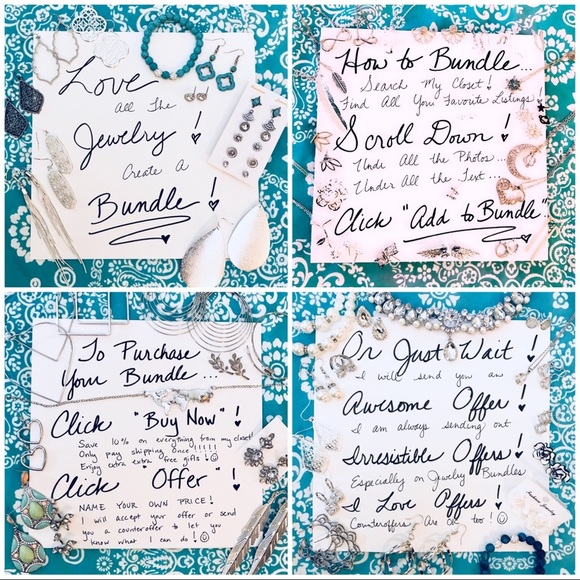 Love
All The
Jewelry!
Create A
Bundle!
How to Bundle...
Search My Closet!
Find All You Favorite Listings!
Scroll Down!
Unde All the Photos...
Under All the Text...
Click "Add to Bundle"
To Purchase
Your Bundle...
Click "Buy Now"!
Save 10% on everything from my closet
Only pay shipping once!!!!!
Enjoy extra extra free gifts!
Click "Offer"!
NAME YOUR OWN PRICE!
I will accept your offer or send
you a counteroffer to let you
know what I can do!
Or Just Wait!
I will send you an
Awesome Offer!
I am always sending out
Irresistible Offers!
Especially on Jewelry Bundles
I Love Offers!
Counteroffers Are OK too!